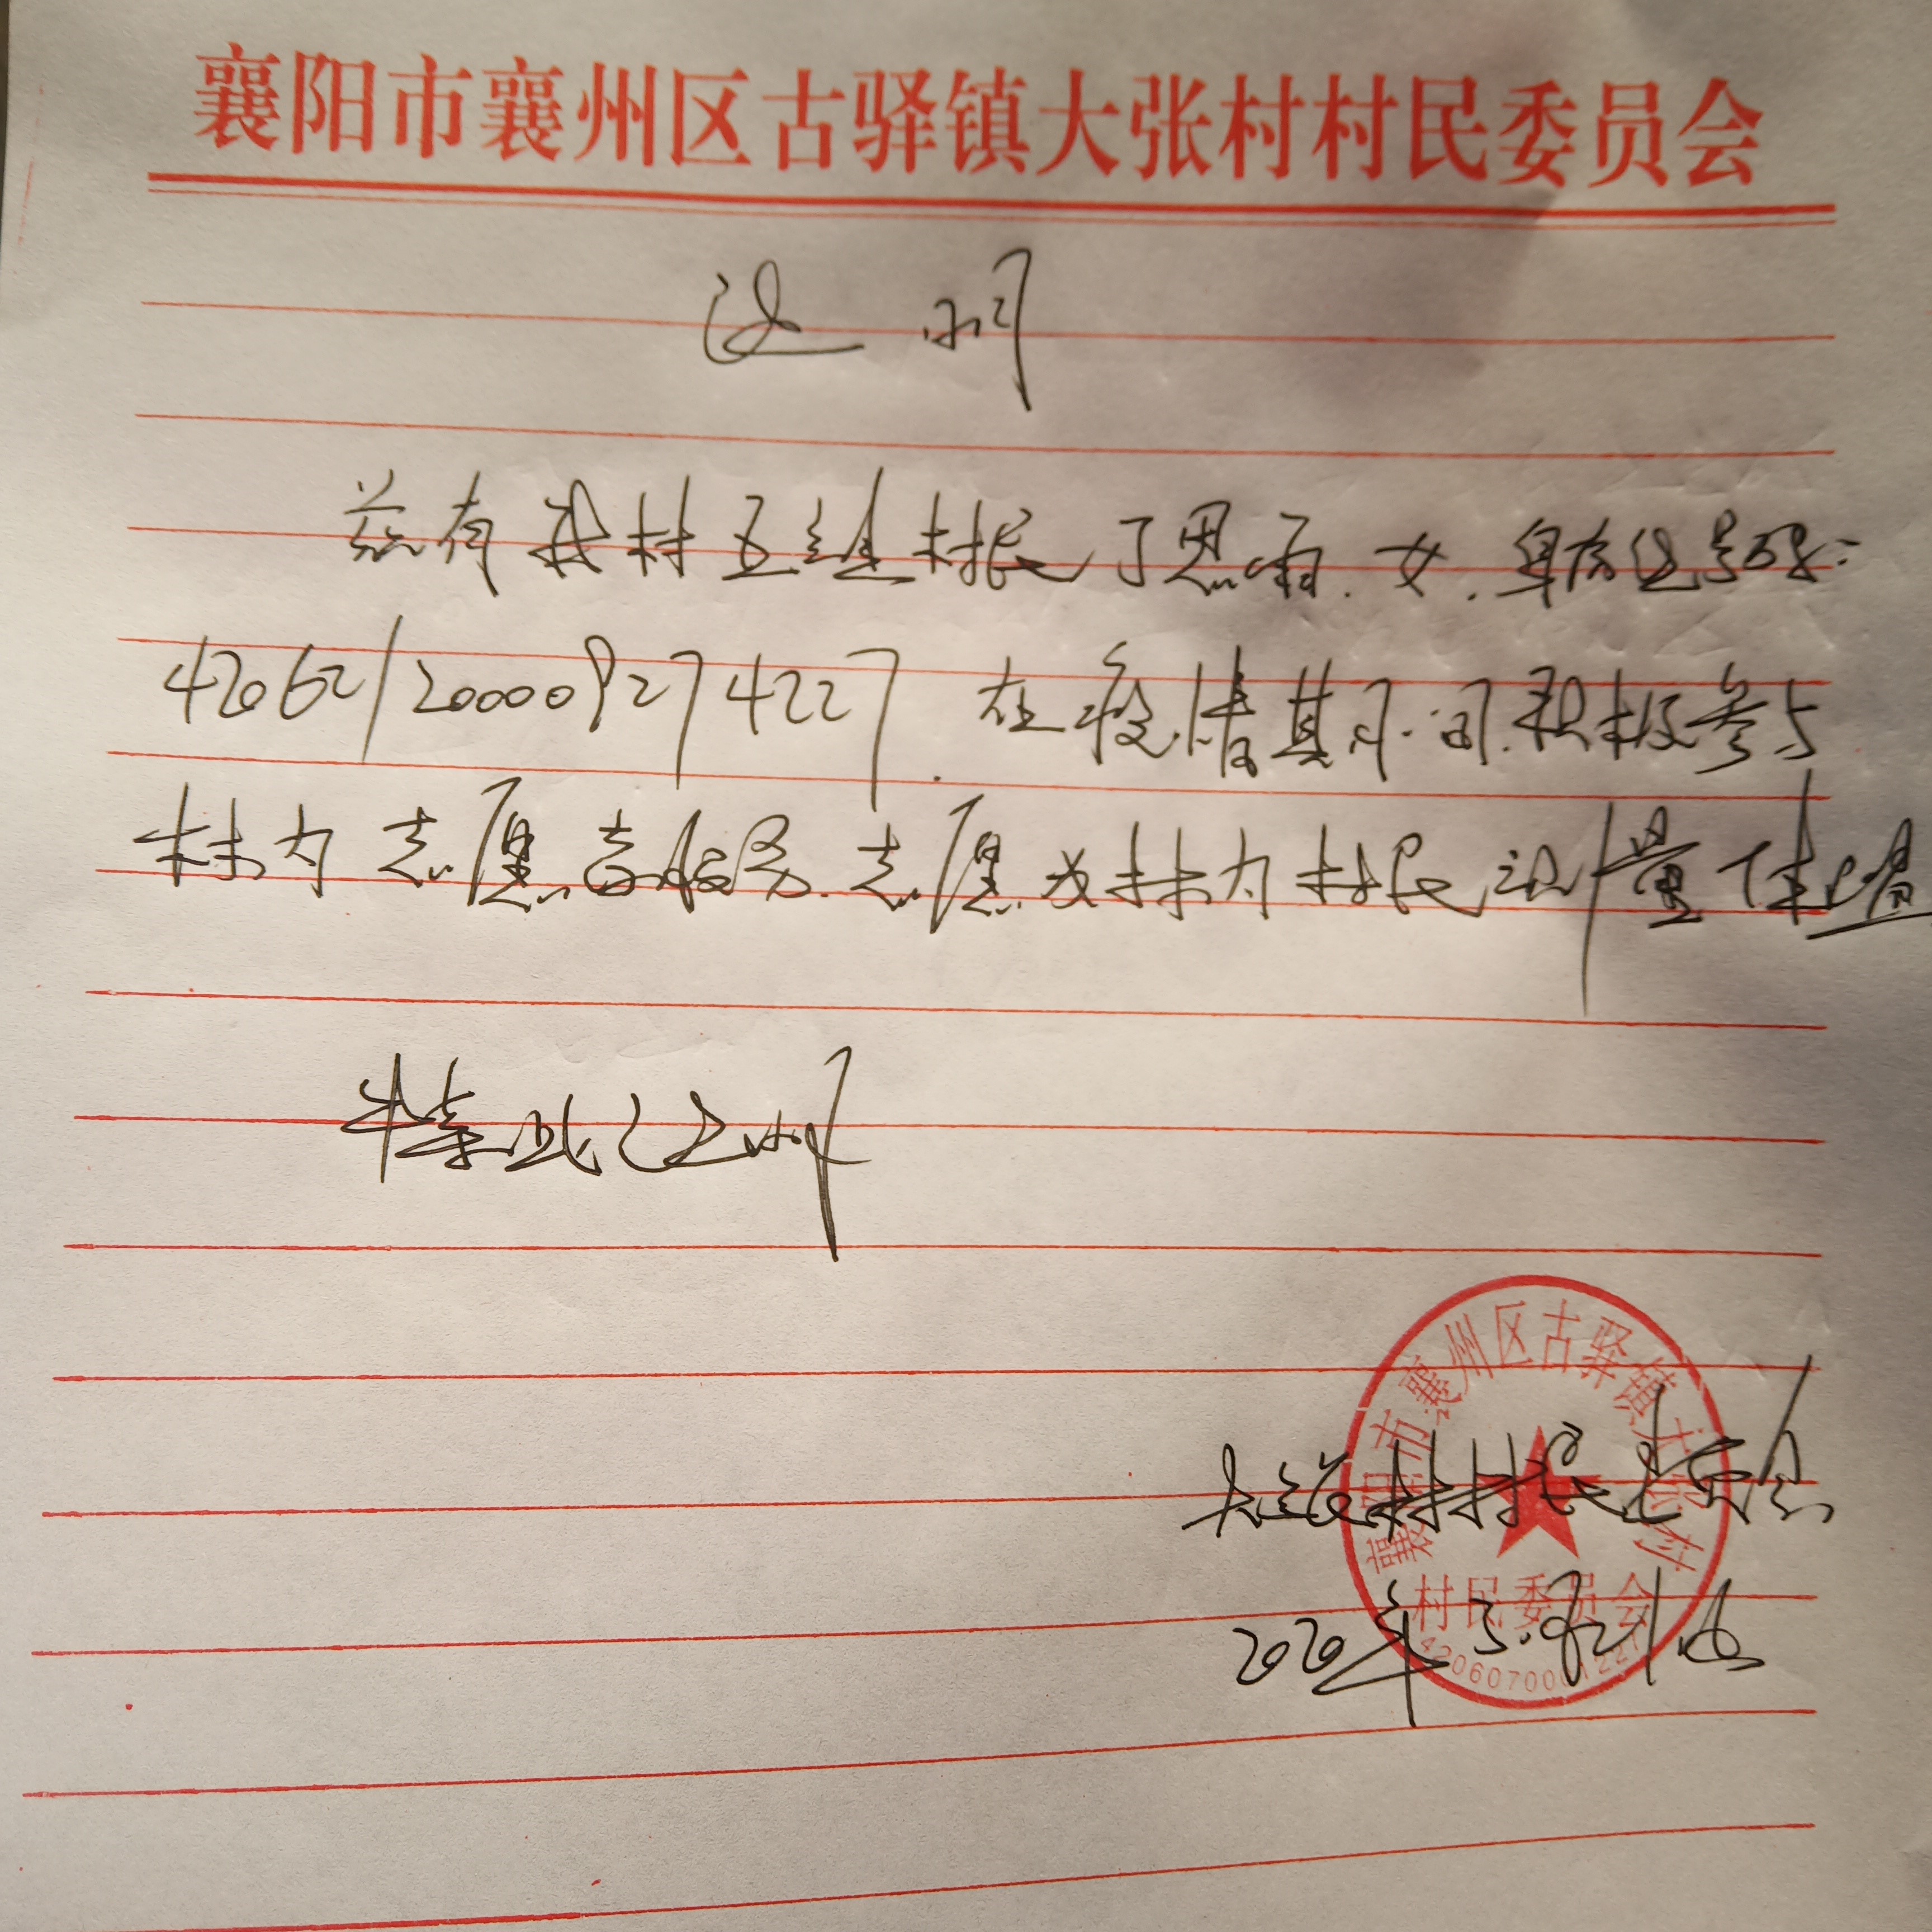 襄阳市襄州区古驿镇大张村村民委员会
证明
兹有我村五组村民丁恩雨.女.身份证号码:
420621200009274227.在疫情其月间.积极参与
村内志愿者服务.志愿为村内村民测量体温
特此证明
大张村村民委员会
2020年3.月21日
襄阳市襄州区古驿镇大张村
村民委员会